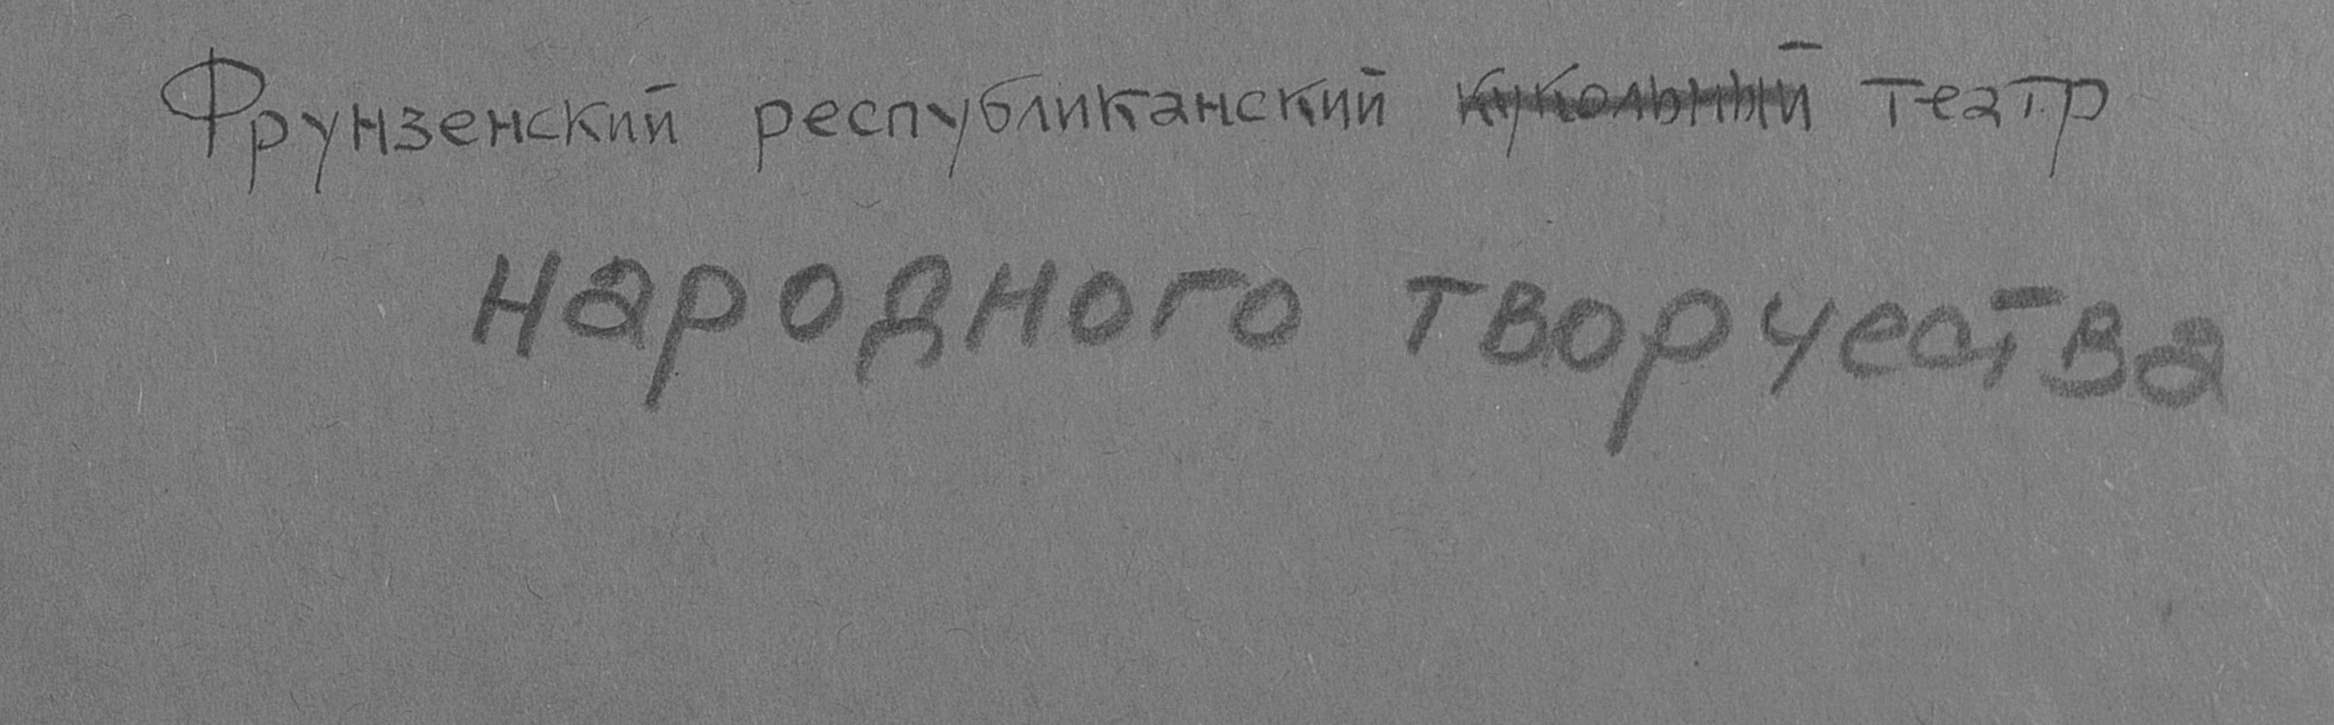 Фрунзенский республиканский кукольный театр
народного творчества